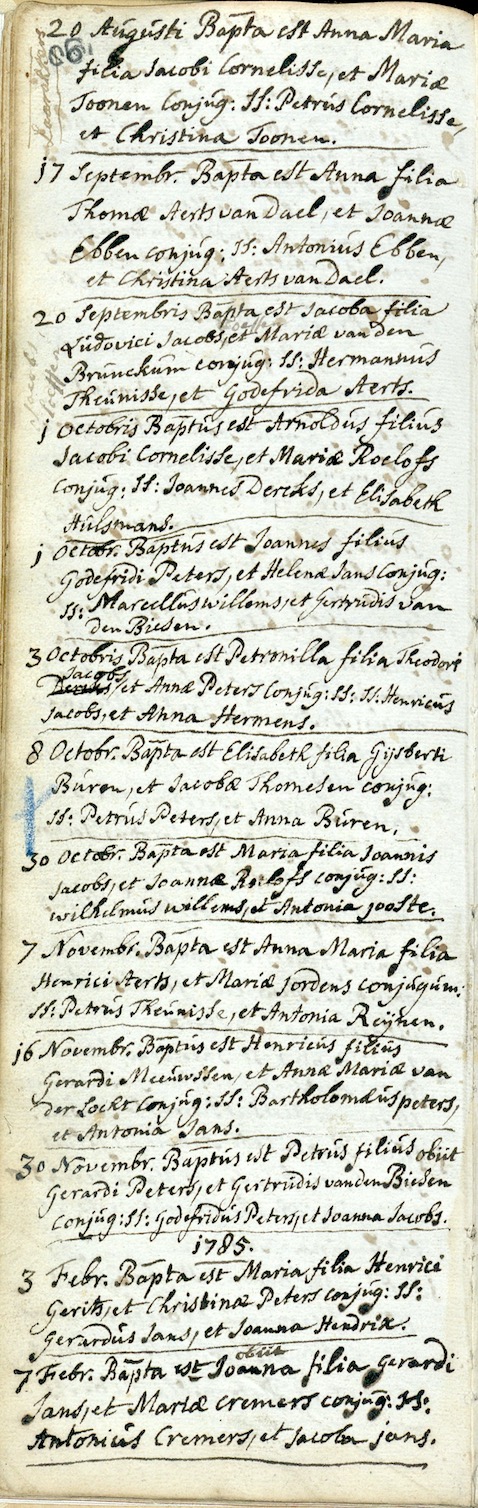 20 Augusti Bapta est Anna Maria
filia Jacobi Cornelisse, et Mariæ
Toonen Conjug: SS: Petrus Cornelisse,
et Christina Toonen.
17 Septembr. Bapta est Anna filia
Thomæ Aerts van Dael, et Joannæ
Ebben conjug: SS: Antonius Ebben,
et Christina Aerts van Dael.
20 Septembris Bapta est Jacoba filia
Ludovici Jacobs, et Mariæ van den
Brunckum conjug: SS: Hermannus
Theunisse, et Godefrida Aerts.
1 Octobris Baptus est Arnoldus filius
Jacobi Cornelisse, et Mariæ Roelofs
conjug: SS: Joannes Dercks, et Elisabeth
Hulsmans.
1 Octobr. Baptus est Joannes filius
Godefridi Peters, et Helenæ Jans Conjug:
SS: Marcellus willems, et Gertrudis van
den Biesen.
3 Octobris Bapta est Petronilla filia Theodori
Jacobs
, et Annæ Peters Conjug: SS: SS: Henricus
Jacobs, et Anna Hermens.
8 Octobr. Bapta est Elisabeth filia Gijsberti
Buren, et Jacobæ Thomesen conjug:
SS: Petrus Peters, et Anna Buren.
30 Octobr. Bapta est Maria filia Joannis
Jacobs, et Joannæ Roelofs conjug: SS:
wilhelmus willems, et Antonia jooste.
7 Novembr. Bapta est Anna Maria filia
Henrici Aerts, et Mariæ jordens conjugum:
SS: Petrus Theunisse, et Antonia Reijnen.
16 Novembr. Baptus est Henricus filius
Gerardi Meeuwssen, et Annæ Mariæ van
der Lockt Conjug: SS: Bartholomæus peters,
et Antonia Jans.
30 Novembr. Baptus est Petrus filius obiit
Gerardi Peters, et Gertrudis van den Biesen
Conjug: SS: Godefridus Peters, et Joanna Jacobs.
1785.
3 Febr. Bapta est Maria filia Henrici
Gerits, et Christinæ Peters conjug: SS:
Gerardus Jans, et Joanna Hendrix.
obiit
7 Febr. Bapta est Joanna filia Gerardi
Jans, et Mariæ Cremers conjug: SS:
Antonius Cremers, et Jacoba jans.